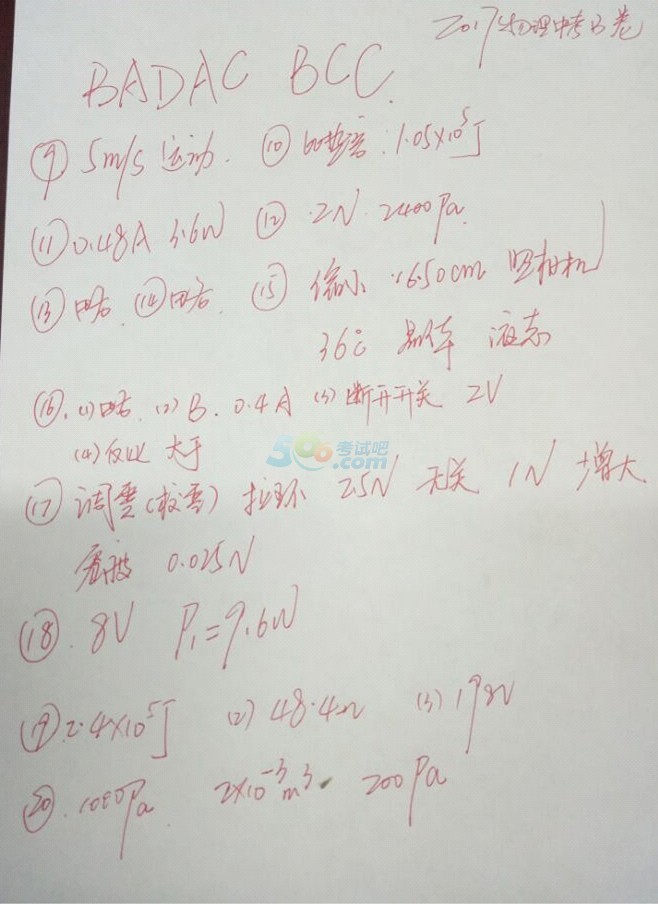 2017物理中考B卷
BADAC BCC.
⑨ 5m/s 运动. ⑩ 1.05×10⁵J
⑪ 0.48A 3.6W ⑫ 2N 2400Pa
⑬ 略. ⑭ 略. ⑮ 缩小 50cm 照相机
36℃ 晶体 液态
⑯. (1) 略. (2) B. 0.4A (3) 断开开关 2V
(4) 反比 大于
506 考试吧 .com
⑰ 调零(校零) 拉环 2.5N 无关 1N 增大
0.025N
⑱. 8V P₁=9.6W
⑲ 2.4×10⁵J (2) 48.4Ω (3)
⑳. 1000Pa. 2×10⁻³m³. 200Pa